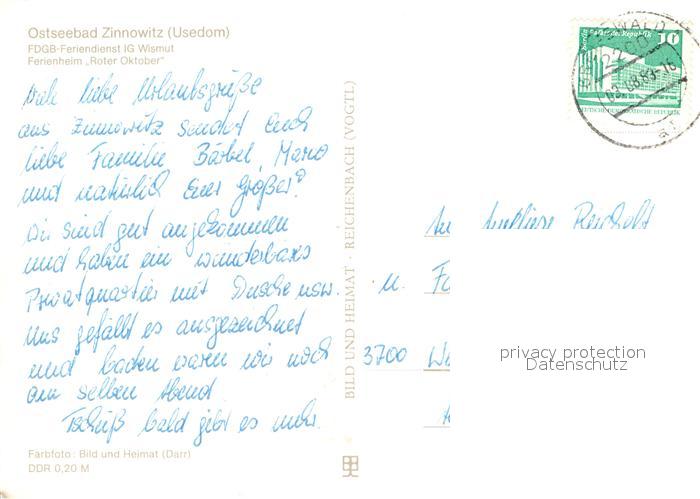 Ostseebad Zinnowitz (Usedom)
FDGB-Feriendienst IG Wismut
Ferienheim „Roter Oktober"
Viele liebe Urlaubsgrüße
aus Zinnowitz sendet Euch
liebe Familie Bärbel, Mario
und natürlich Euer Großer?
Wir sind gut angekommen
und haben ein wunderbares
Privatquartier mit Dusche usw.
Uns gefällt es ausgezeichnet
und baden waren wir noch
am selben Abend.
Tschüß bald gibt es mehr.
Farbfoto: Bild und Heimat (Darr)
DDR 0,20 M
BILD UND HEIMAT · REICHENBACH (VOGTL)
Berlin Palast der Republik 10
DEUTSCHE DEMOKRATISCHE REPUBLIK
2200
03.08.83-16
u. Fa
3700 We
privacy protection
Datenschutz